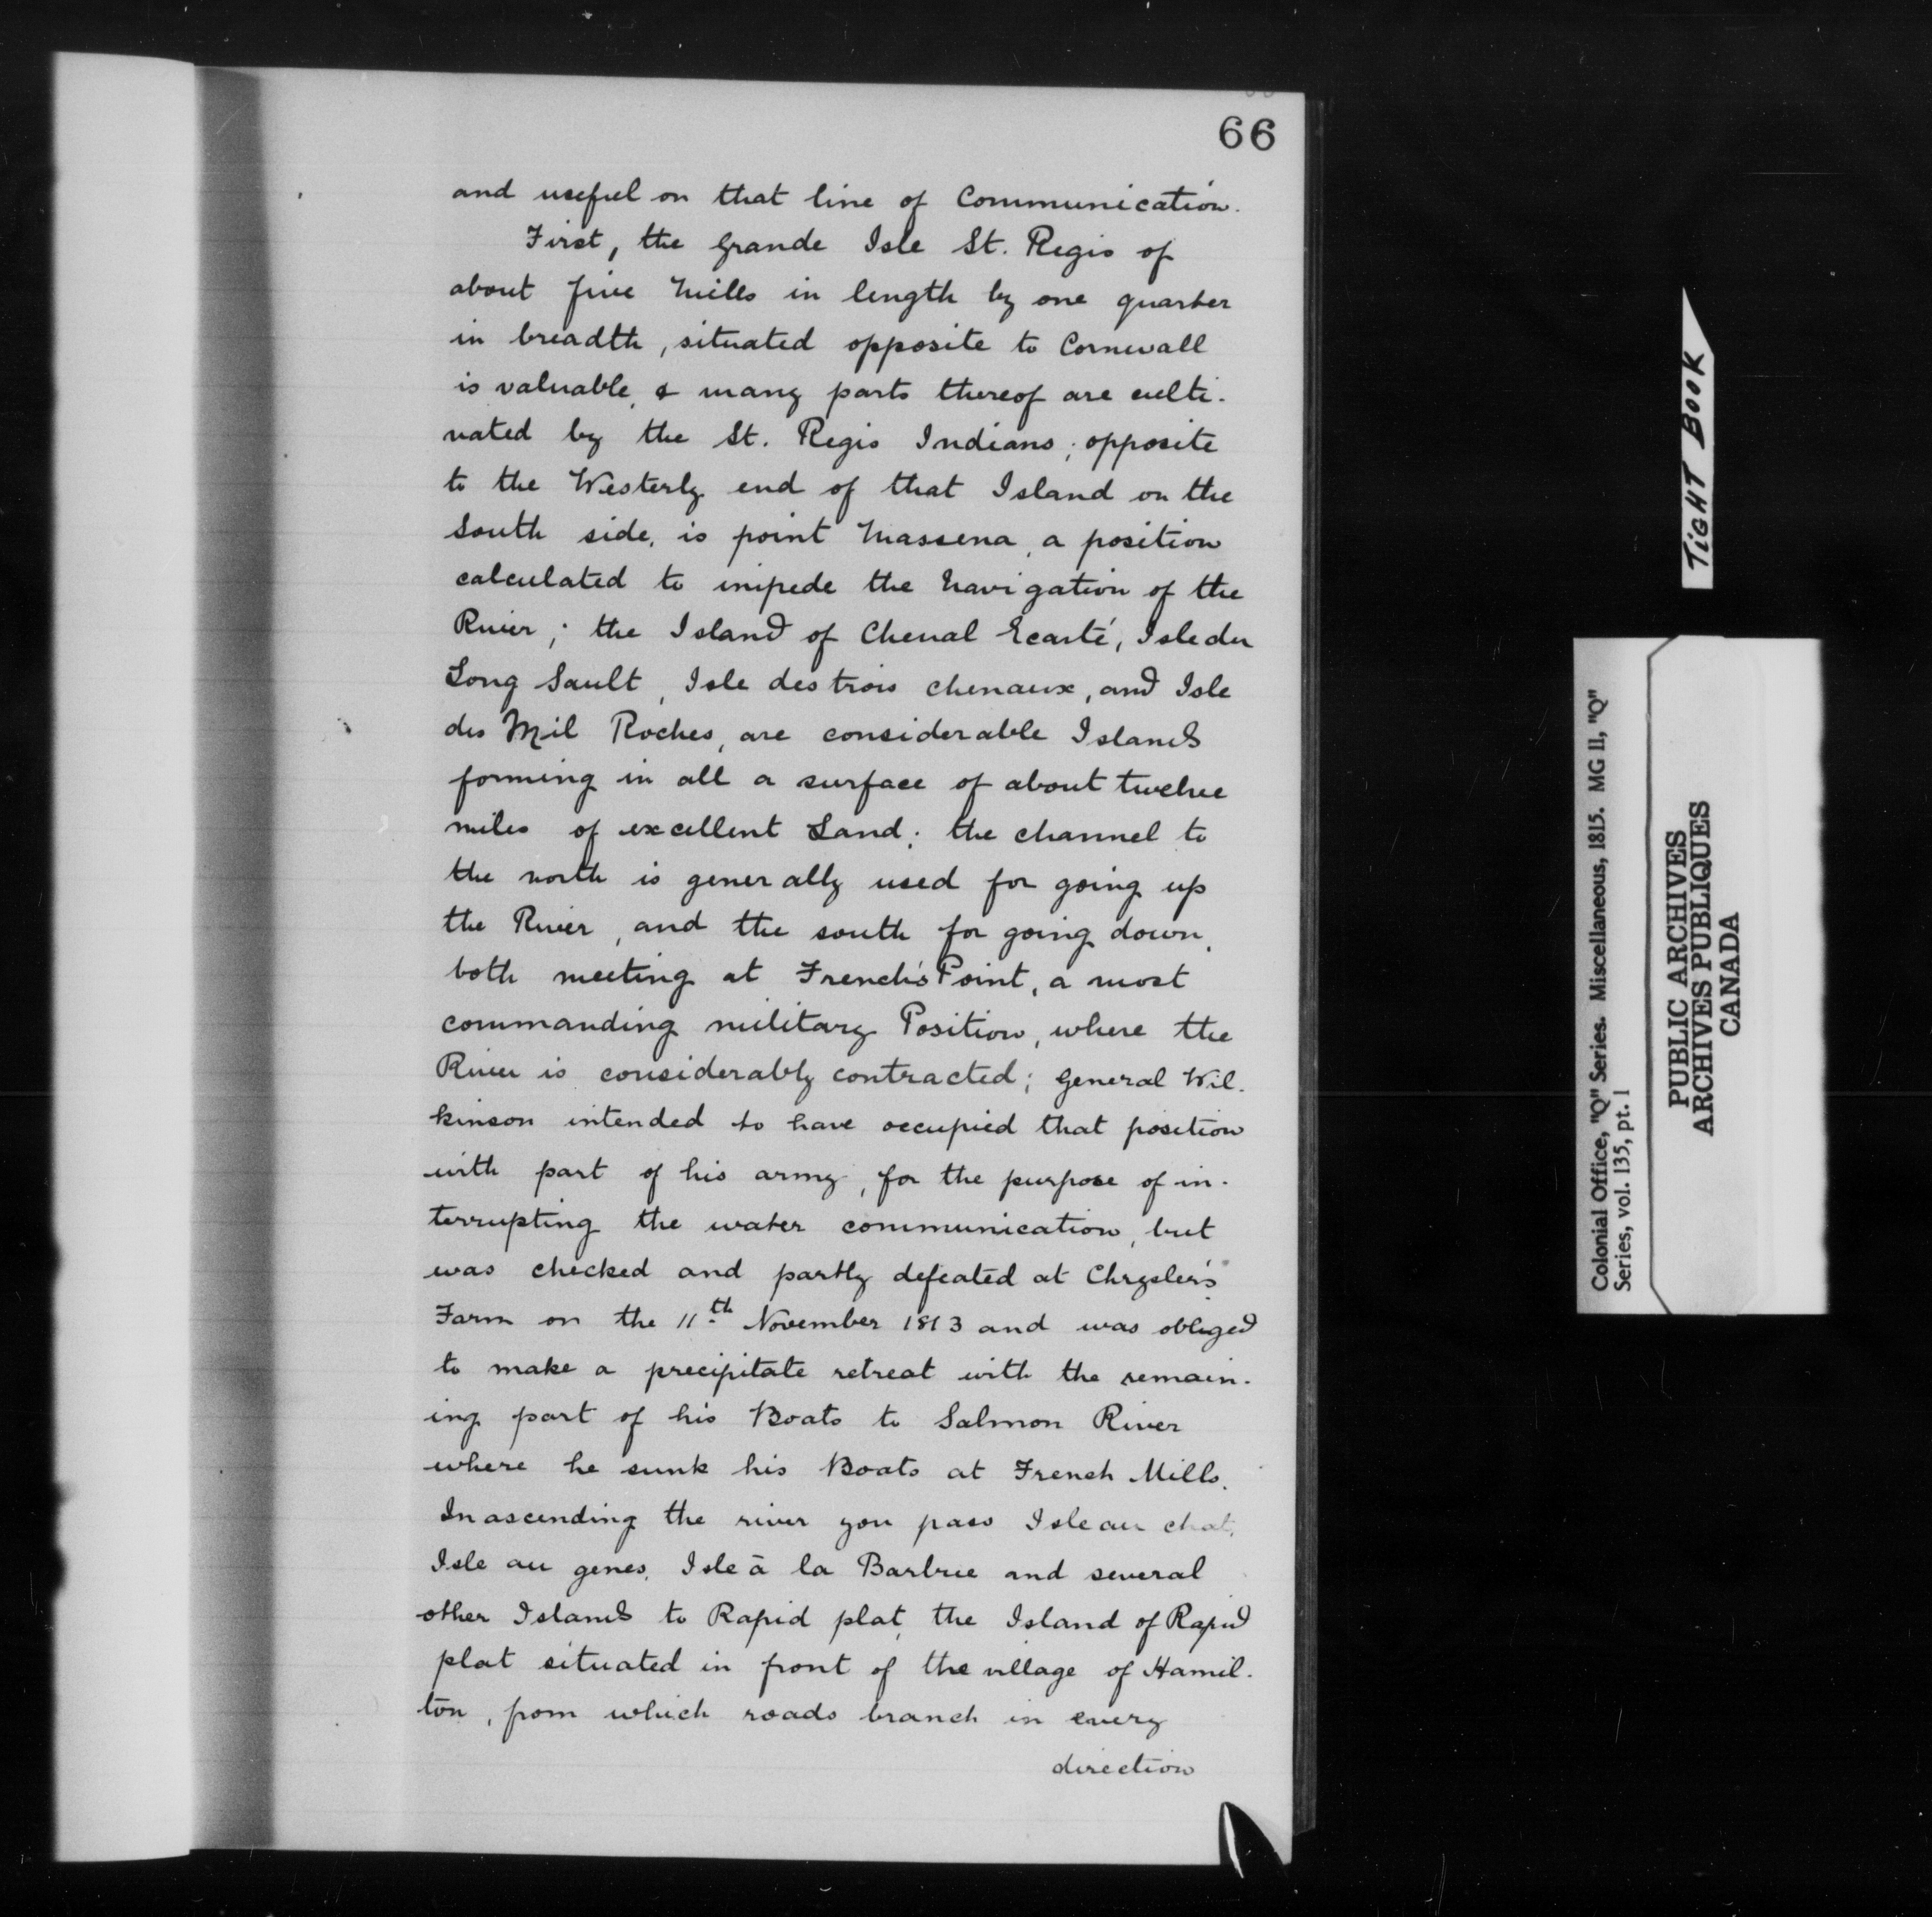 66
and useful on that line of Communication.
First, the Grande Isle St. Regis of
about five Mills in length by one quarter
in breadth, situated opposite to Cornwall
is valuable, & many parts thereof are culti-
vated by the St. Regis Indians; opposite
to the Westerly end of that Island on the
South side, is point Massena, a position
calculated to impede the Navigation of the
River; the Island of Chenal Ecarté, Isle du
Long Sault, Isle des trois chenaux, and Isle
des Mil Roches, are considerable Islands
forming in all a surface of about twelve
miles of excellent Land; the channel to
the north is generally used for going up
the River, and the south for going down,
both meeting at French's Point, a most
commanding military Position, where the
River is considerably contracted; General Wil-
kinson intended to have occupied that position
with part of his army, for the purpose of in-
terrupting the water communication, but
was checked and partly defeated at Chrysler's
Farm on the 11th November 1813 and was obliged
to make a precipitate retreat with the remain-
ing part of his Boats to Salmon River
where he sunk his Boats at French Mills.
In ascending the river you pass Isle au chat,
Isle au genes, Isle à la Barbue and several
other Islands to Rapid plat, the Island of Rapid
plat situated in front of the village of Hamil-
ton, from which roads branch in every
direction
TIGHT BOOK
Colonial Office, "Q" Series. Miscellaneous, 1815. MG 11, "Q"
Series, vol. 135, pt. 1
PUBLIC ARCHIVES
ARCHIVES PUBLIQUES
CANADA